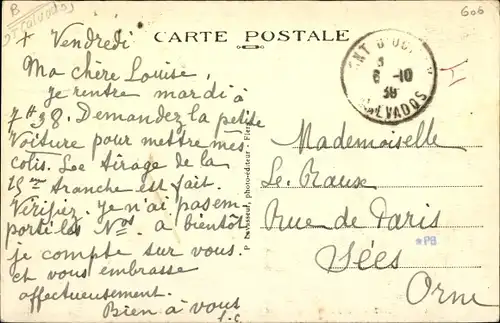 B
Calvados
606
CARTE POSTALE
+ Vendredi
Ma chère Louise,
je rentre mardi à
7 H 38. Demandez la petite
Voiture pour mettre mes
colis. Le tirage de la
15ème tranche est fait.
Vérifiez. Je n'ai pas em
porté les Nos. A bientôt
je compte sur vous.
et vous embrasse
affectueusement.
Bien à vous
L.C.
P. Levasseur, photo-éditeur - Flers
6-10
38
CALVADOS
Mademoiselle
Le Raux
Rue de Paris
*PB
Sées
Orne